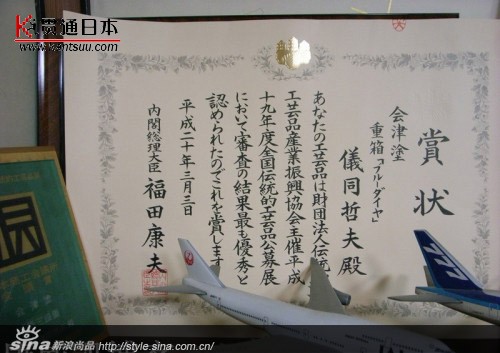 贯通日本
www.kantsuu.com
賞状
会津塗
重箱「ブルーダイヤ」
儀同哲夫殿
あなたの工芸品は財団法人伝統
工芸品産業振興協会主催平成
十九年度全国伝統的工芸品公募展
において審査の結果最も優秀と
認められたのでこれを賞します
平成二十年三月三日
内閣総理大臣 福田康夫
sina 新浪尚品 http://style.sina.com.cn/